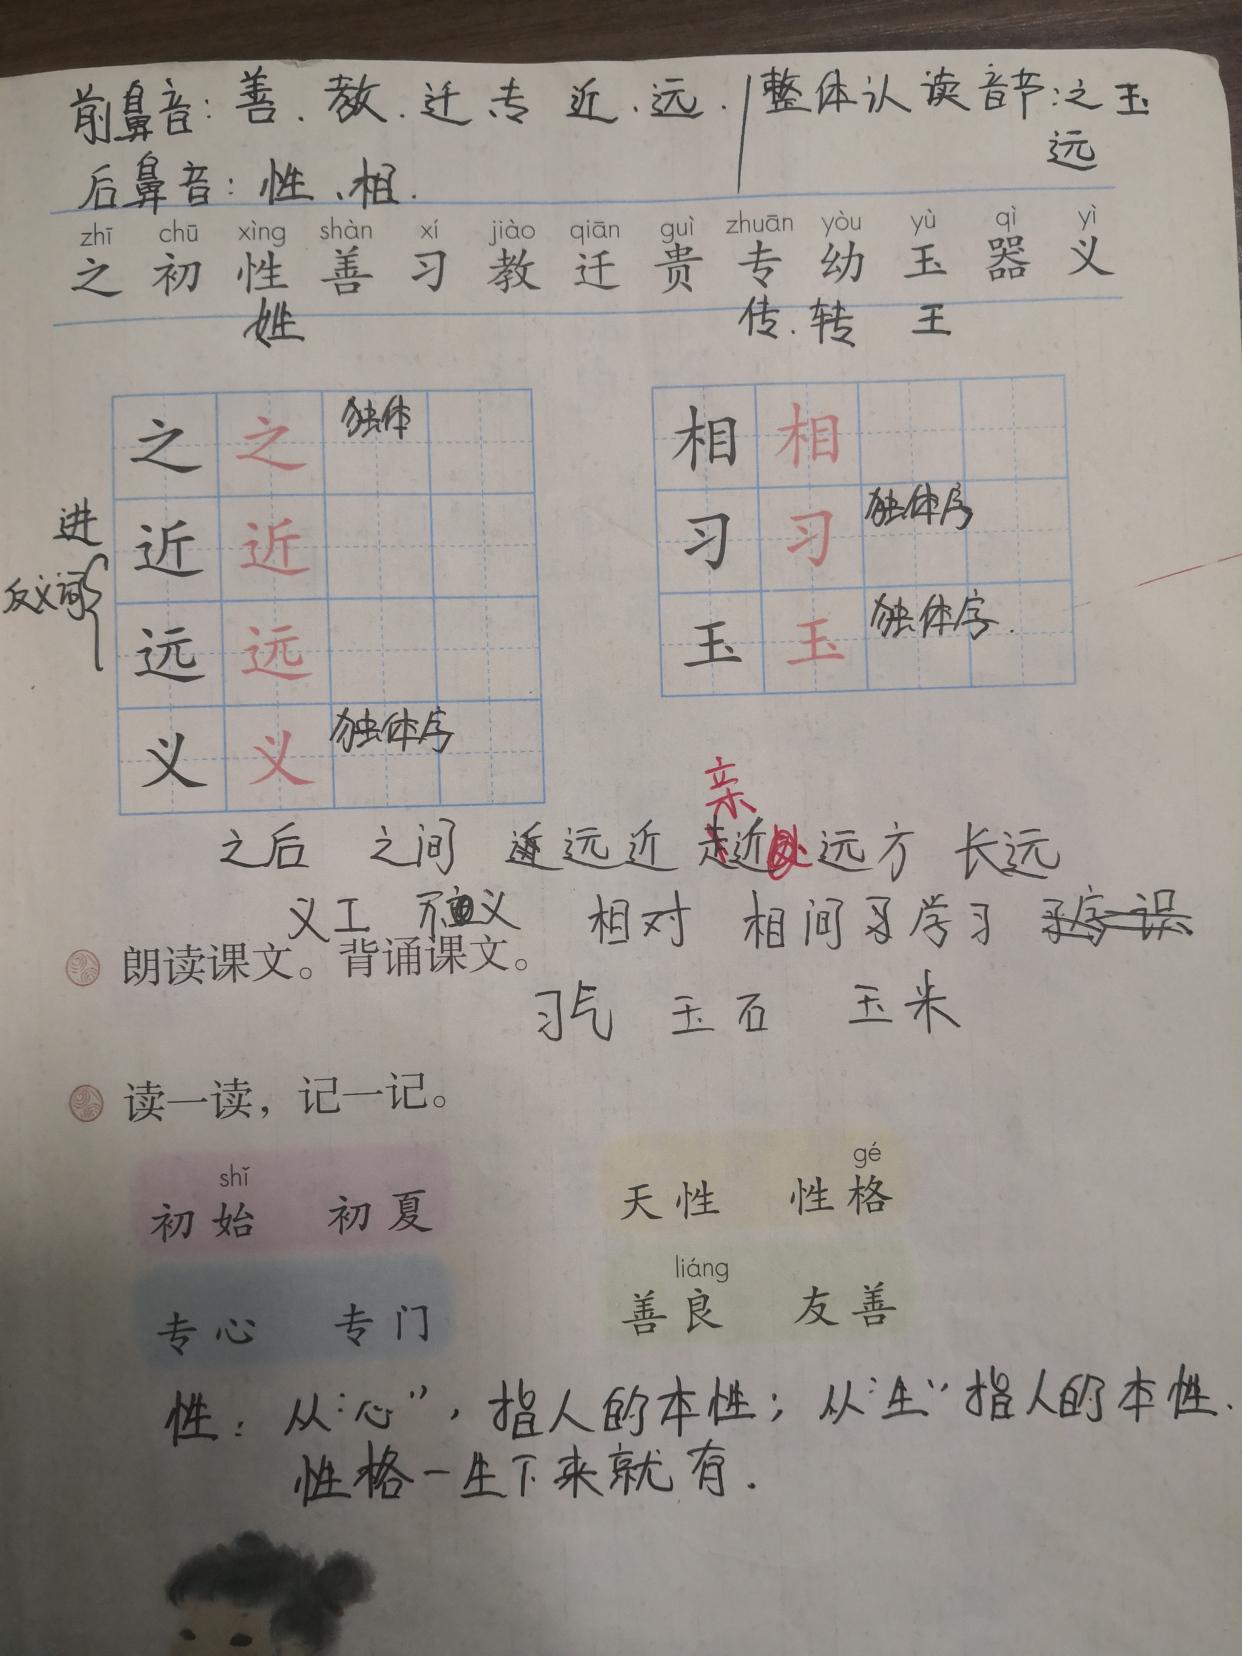 前鼻音：善、教、迁、专 近、远. 整体认读音节：之 玉
远
后鼻音：性、相.
zhī chū xìng shàn xí jiào qiān guì zhuān yòu yù qì yì
之 初 性 善 习 教 迁 贵 专 幼 玉 器 义
姓 传.转 王
之 之 独体
相 相
进
近 近
习 习 独体字
反义词
远 远
玉 玉 独体字.
义 义 独体字
亲
之后 之间 远近 近 远方 长远
义工 义 相对 相间 学习
朗读课文。背诵课文。
习气 玉石 玉米
读一读，记一记。
shǐ gé
初始 初夏 天性 性格
liáng
专心 专门 善良 友善
性：从“心”，指人的本性；从“生”指人的本性.
性格一生下来就有.